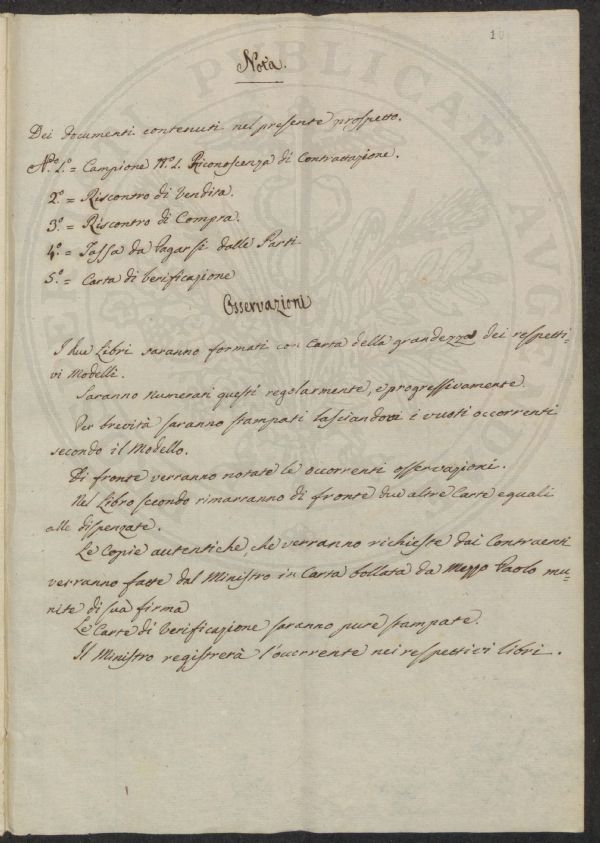 1
Nota.
Dei documenti contenuti nel presente prospetto.
N.º 1.º = Campione N.º 1. Riconoscenza di Contrattazione.
2.º = Riscontro di Vendita.
3.º = Riscontro di Compra.
4.º = Tassa da Pagarsi dalle Parti
5.º = Carta di Verificazione
Osservazioni
I due Libri saranno formati con Carta della grandezza dei respetti-
vi Modelli.
Saranno numerati questi regolarmente, e progressivamente.
Per brevità saranno stampati lasciandovi i vuoti occorrenti
secondo il Modello.
Di fronte verranno notate le occorrenti osservazioni.
Nel Libro secondo rimarranno di fronte due altre Carte eguali
alle dispenzate.
Le Copie autentiche, che verranno richieste dai Contraenti
verranno fatte dal Ministro in Carta bollata da Mezzo Paolo mu=
nite di sua firma
Le Carte di Verificazione saranno pure stampate.
Il Ministro registrerà l'occorrente nei respettivi libri.